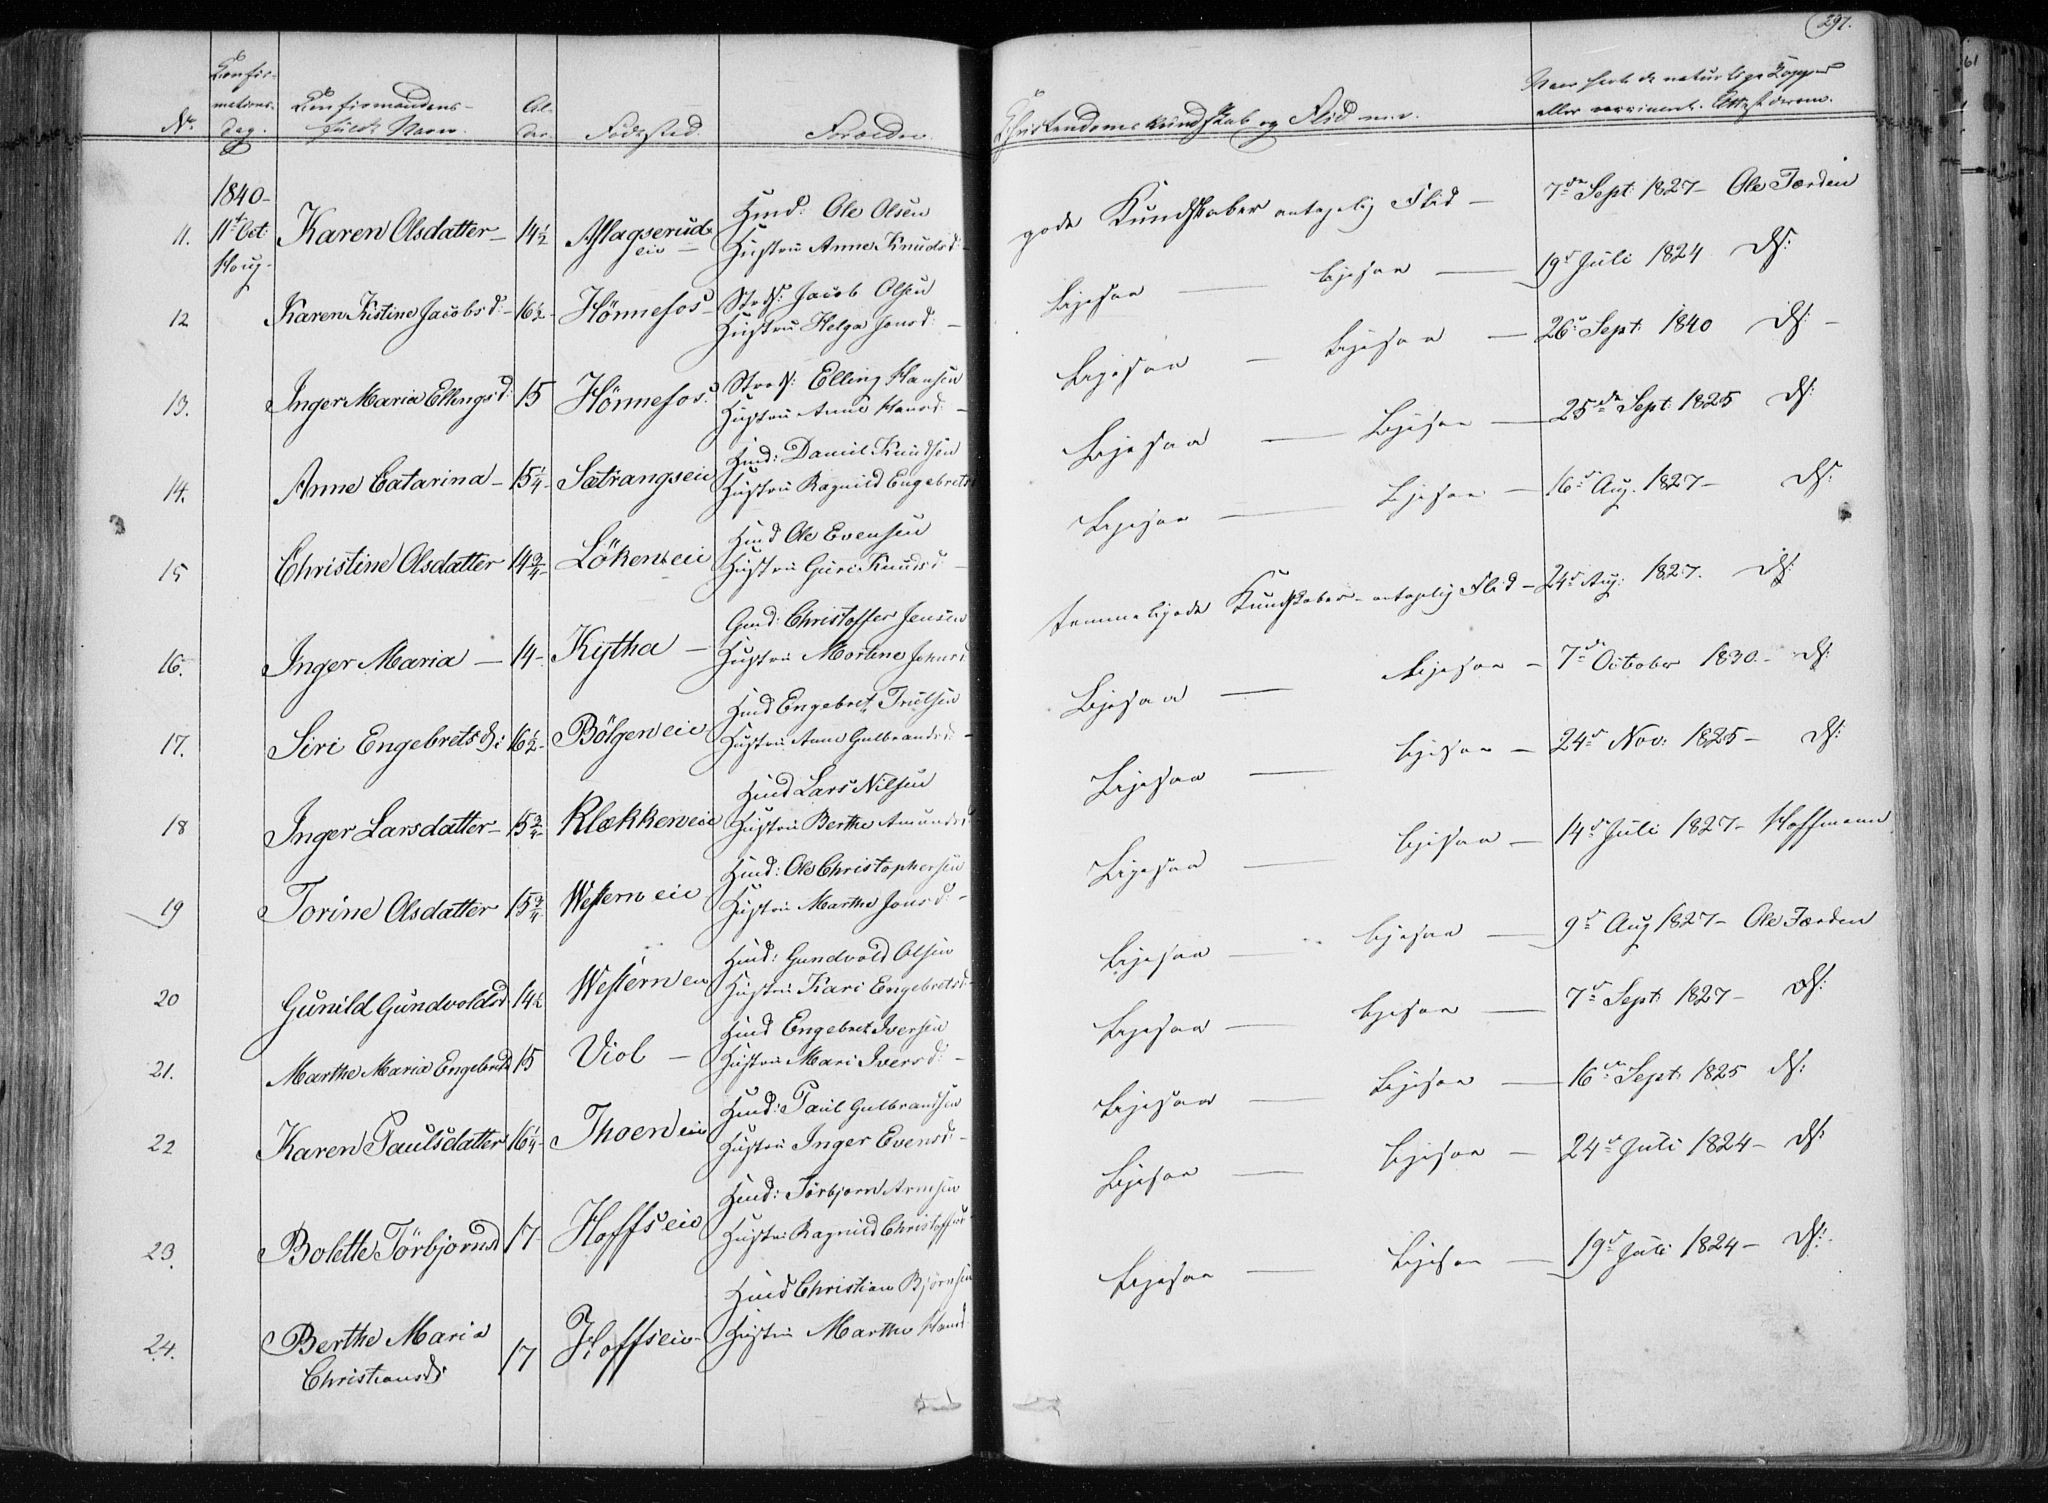 291.
No.
Confir-
mations-
dag.
Confirmandens
fulde Navn.
Al-
der.
Fødested.
Forældre.
Christendoms Kundskab og Flid m.v.
Naar havt de naturlige Kopper
eller vaccineret. Attest derom.
1840-
11te Oct.
Houg-
11. Karen Olsdatter - 14 1/2 Aslagserud- eie - Huusd: Ole Olsen
Hustru Anne Knudsd: -
gode Kundskaber antagelig Flid - 7de Sept: 1827- Ole Færden
12 Karen Kistine Jacobsd: - 16 1/2 - Hönnefos - Strds: Jacob Olsen
Hustru Helga Jonsd: -
Ligesaa — ligesaa — 19de Juli 1824 ds:
13. Inger Maria Ellingsd: 15 Hönnefos. Strds: Elling Hansen
Hustru Anne Hansd: -
Ligesaa — Ligesaa — 26de Sept: 1840 ds: -
14. Anne Catarina - 15 1/4 - Sætrangseie Huusd: Daniel Knudsen
Hustru Ragnild Engebretsd
Ligesaa — Ligesaa — 25de Sept: 1825 ds:
15 Christine Olsdatter 14 3/4 - Lökeneie Huusd Ole Evensen
Hustru Guri Knudsd: -
Ligesaa — Ligesaa — 16de Aug. 1827- ds:
16. Inger Maria - 14- Kytha - Gmd: Christoffer Jensen
Hustru Mortine Johnsd
temmelig gode Kundskaber - antagelig Flid - 24de Aug: 1827. ds:
17. Siri Engebretsd: 16 1/2 - Bölgeneie Huusd Engebret Trulsen
Hustru Anne Gulbrandsd: -
Ligesaa — Ligesaa — 7de October 1830.- ds:
18 Inger Larsdatter- 15 3/4 - Klækkeneie Huusd Lars Nilsen
Hustru Berthe Amundsd
Ligesaa — ligesaa — 24de Nov: 1825- ds:
19 Torine Olsdatter 15 3/4 Westerneie Huusd: Ole Christophersen
Hustru Marthe Jonsd: -
Ligesaa — ligesaa — 14de Juli 1827- Hoffmann
20 Gunild Gundvoldsd 14 1/2 Westerneie Huusd: Gundvold Olsen
Hustru Kari Engebretsd-
Ligesaa — ligesaa — 9de Aug 1827- Ole Færden
21. Marthe Maria Engebretsd 15 Viol - Huusd Engebret Iversen
Hustru Mari Iversd: -
Ligesaa — ligesaa — 7de Sept: 1827- ds:
22 Karen Paulsdatter 16 1/4 - Thoeneie Huusd: Paul Gulbrandsen
Hustru Inger Evensd: -
Ligesaa — Ligesaa — 16de Sept: 1825 ds:
23. Bolette Törbjornsd 17- Hoffseie Huusd: Törbjorn Arnesen
Hustru Ragnild Christoffersd
Ligesaa — Ligesaa — 24de Juli 1824- ds:
24. Berthe Maria
Christiansd: 17 Hoffseie- Huusd Christian Björnsen
Hustru Marthe Hansd
Ligesaa — Ligesaa — 19de Juli 1824- ds: